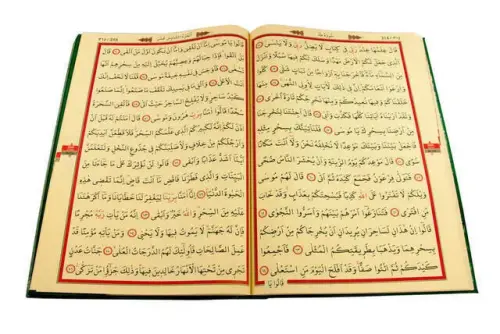 سُورَةُ طٰهٰ
قَالَ عِلْمُهَا عِنْدَ رَبّٖي فٖي كِتَابٍ لَا يَضِلُّ رَبّٖي وَلَا يَنْسٰى
اَلَّذٖي جَعَلَ لَكُمُ الْاَرْضَ مَهْدًا وَسَلَكَ لَكُمْ فٖيهَا سُبُلًا وَاَنْزَلَ
مِنَ السَّمَاءِ مَاءً فَاَخْرَجْنَا بِهٖ اَزْوَاجًا مِنْ نَبَاتٍ شَتّٰى كُلُوا
وَارْعَوْا اَنْعَامَكُمْ اِنَّ فٖي ذٰلِكَ لَاٰيَاتٍ لِاُولِي النُّهٰى مِنْهَا
خَلَقْنَاكُمْ وَفٖيهَا نُعٖيدُكُمْ وَمِنْهَا نُخْرِجُكُمْ تَارَةً اُخْرٰى
وَلَقَدْ اَرَيْنَاهُ اٰيَاتِنَا كُلَّهَا فَكَذَّبَ وَاَبٰى قَالَ اَجِئْتَنَا لِتُخْرِجَنَا
مِنْ اَرْضِنَا بِسِحْرِكَ يَا مُوسٰى فَلَنَأْتِيَنَّكَ بِسِحْرٍ مِثْلِهٖ
فَاجْعَلْ بَيْنَنَا وَبَيْنَكَ مَوْعِدًا لَا نُخْلِفُهُ نَحْنُ وَلَا اَنْتَ مَكَانًا
سُوًى قَالَ مَوْعِدُكُمْ يَوْمُ الزّٖينَةِ وَاَنْ يُحْشَرَ النَّاسُ ضُحًى
فَتَوَلّٰى فِرْعَوْنُ فَجَمَعَ كَيْدَهُ ثُمَّ اَتٰى قَالَ لَهُمْ مُوسٰى
وَيْلَكُمْ لَا تَفْتَرُوا عَلَى اللّٰهِ كَذِبًا فَيُسْحِتَكُمْ بِعَذَابٍ وَقَدْ خَابَ
مَنِ افْتَرٰى فَتَنَازَعُوا اَمْرَهُمْ بَيْنَهُمْ وَاَسَرُّوا النَّجْوٰى
قَالُوا اِنْ هٰذَانِ لَسَاحِرَانِ يُرٖيدَانِ اَنْ يُخْرِجَاكُمْ مِنْ اَرْضِكُمْ
بِسِحْرِهِمَا وَيَذْهَبَا بِطَرٖيقَتِكُمُ الْمُثْلٰى فَاَجْمِعُوا
كَيْدَكُمْ ثُمَّ ائْتُوا صَفًّا وَقَدْ اَفْلَحَ الْيَوْمَ مَنِ اسْتَعْلٰى
قَالُوا يَا
قَالُوا يَا مُوسٰى اِمَّا اَنْ تُلْقِيَ وَاِمَّا اَنْ نَكُونَ اَوَّلَ مَنْ اَلْقٰى
قَالَ بَلْ اَلْقُوا فَاِذَا حِبَالُهُمْ وَعِصِيُّهُمْ يُخَيَّلُ اِلَيْهِ مِنْ سِحْرِهِمْ اَنَّهَا
تَسْعٰى فَاَوْجَسَ فٖي نَفْسِهٖ خٖيفَةً مُوسٰى قُلْنَا لَا تَخَفْ اِنَّكَ
اَنْتَ الْاَعْلٰى وَاَلْقِ مَا فٖي يَمٖينِكَ تَلْقَفْ مَا صَنَعُوا اِنَّمَا صَنَعُوا
كَيْدُ سَاحِرٍ وَلَا يُفْلِحُ السَّاحِرُ حَيْثُ اَتٰى فَاُلْقِيَ السَّحَرَةُ
سُجَّدًا قَالُوا اٰمَنَّا بِرَبِّ هٰرُونَ وَمُوسٰى قَالَ اٰمَنْتُمْ لَهُ قَبْلَ اَنْ اٰذَنَ
لَكُمْ اِنَّهُ لَكَبٖيرُكُمُ الَّذٖي عَلَّمَكُمُ السِّحْرَ فَلَاُقَطِّعَنَّ اَيْدِيَكُمْ
وَاَرْجُلَكُمْ مِنْ خِلَافٍ وَلَاُصَلِّبَنَّكُمْ فٖي جُذُوعِ النَّخْلِ وَلَتَعْلَمُنَّ
اَيُّنَا اَشَدُّ عَذَابًا وَاَبْقٰى قَالُوا لَنْ نُؤْثِرَكَ عَلٰى مَا جَاءَنَا مِنَ
الْبَيِّنَاتِ وَالَّذٖي فَطَرَنَا فَاقْضِ مَا اَنْتَ قَاضٍ اِنَّمَا تَقْضٖي هٰذِهِ
الْحَيٰوةَ الدُّنْيَا اِنَّا اٰمَنَّا بِرَبِّنَا لِيَغْفِرَ لَنَا خَطَايَانَا وَمَا اَكْرَهْتَنَا
عَلَيْهِ مِنَ السِّحْرِ وَاللّٰهُ خَيْرٌ وَاَبْقٰى اِنَّهُ مَنْ يَأْتِ رَبَّهُ مُجْرِمًا
فَاِنَّ لَهُ جَهَنَّمَ لَا يَمُوتُ فٖيهَا وَلَا يَحْيٰى وَمَنْ يَأْتِهٖ مُؤْمِنًا قَدْ
عَمِلَ الصَّالِحَاتِ فَاُولٰئِكَ لَهُمُ الدَّرَجَاتُ الْعُلٰى جَنَّاتُ عَدْنٍ
تَجْرٖي مِنْ تَحْتِهَا الْاَنْهَارُ خَالِدٖينَ فٖيهَا وَذٰلِكَ جَزٰٓؤُا مَنْ تَزَكّٰى